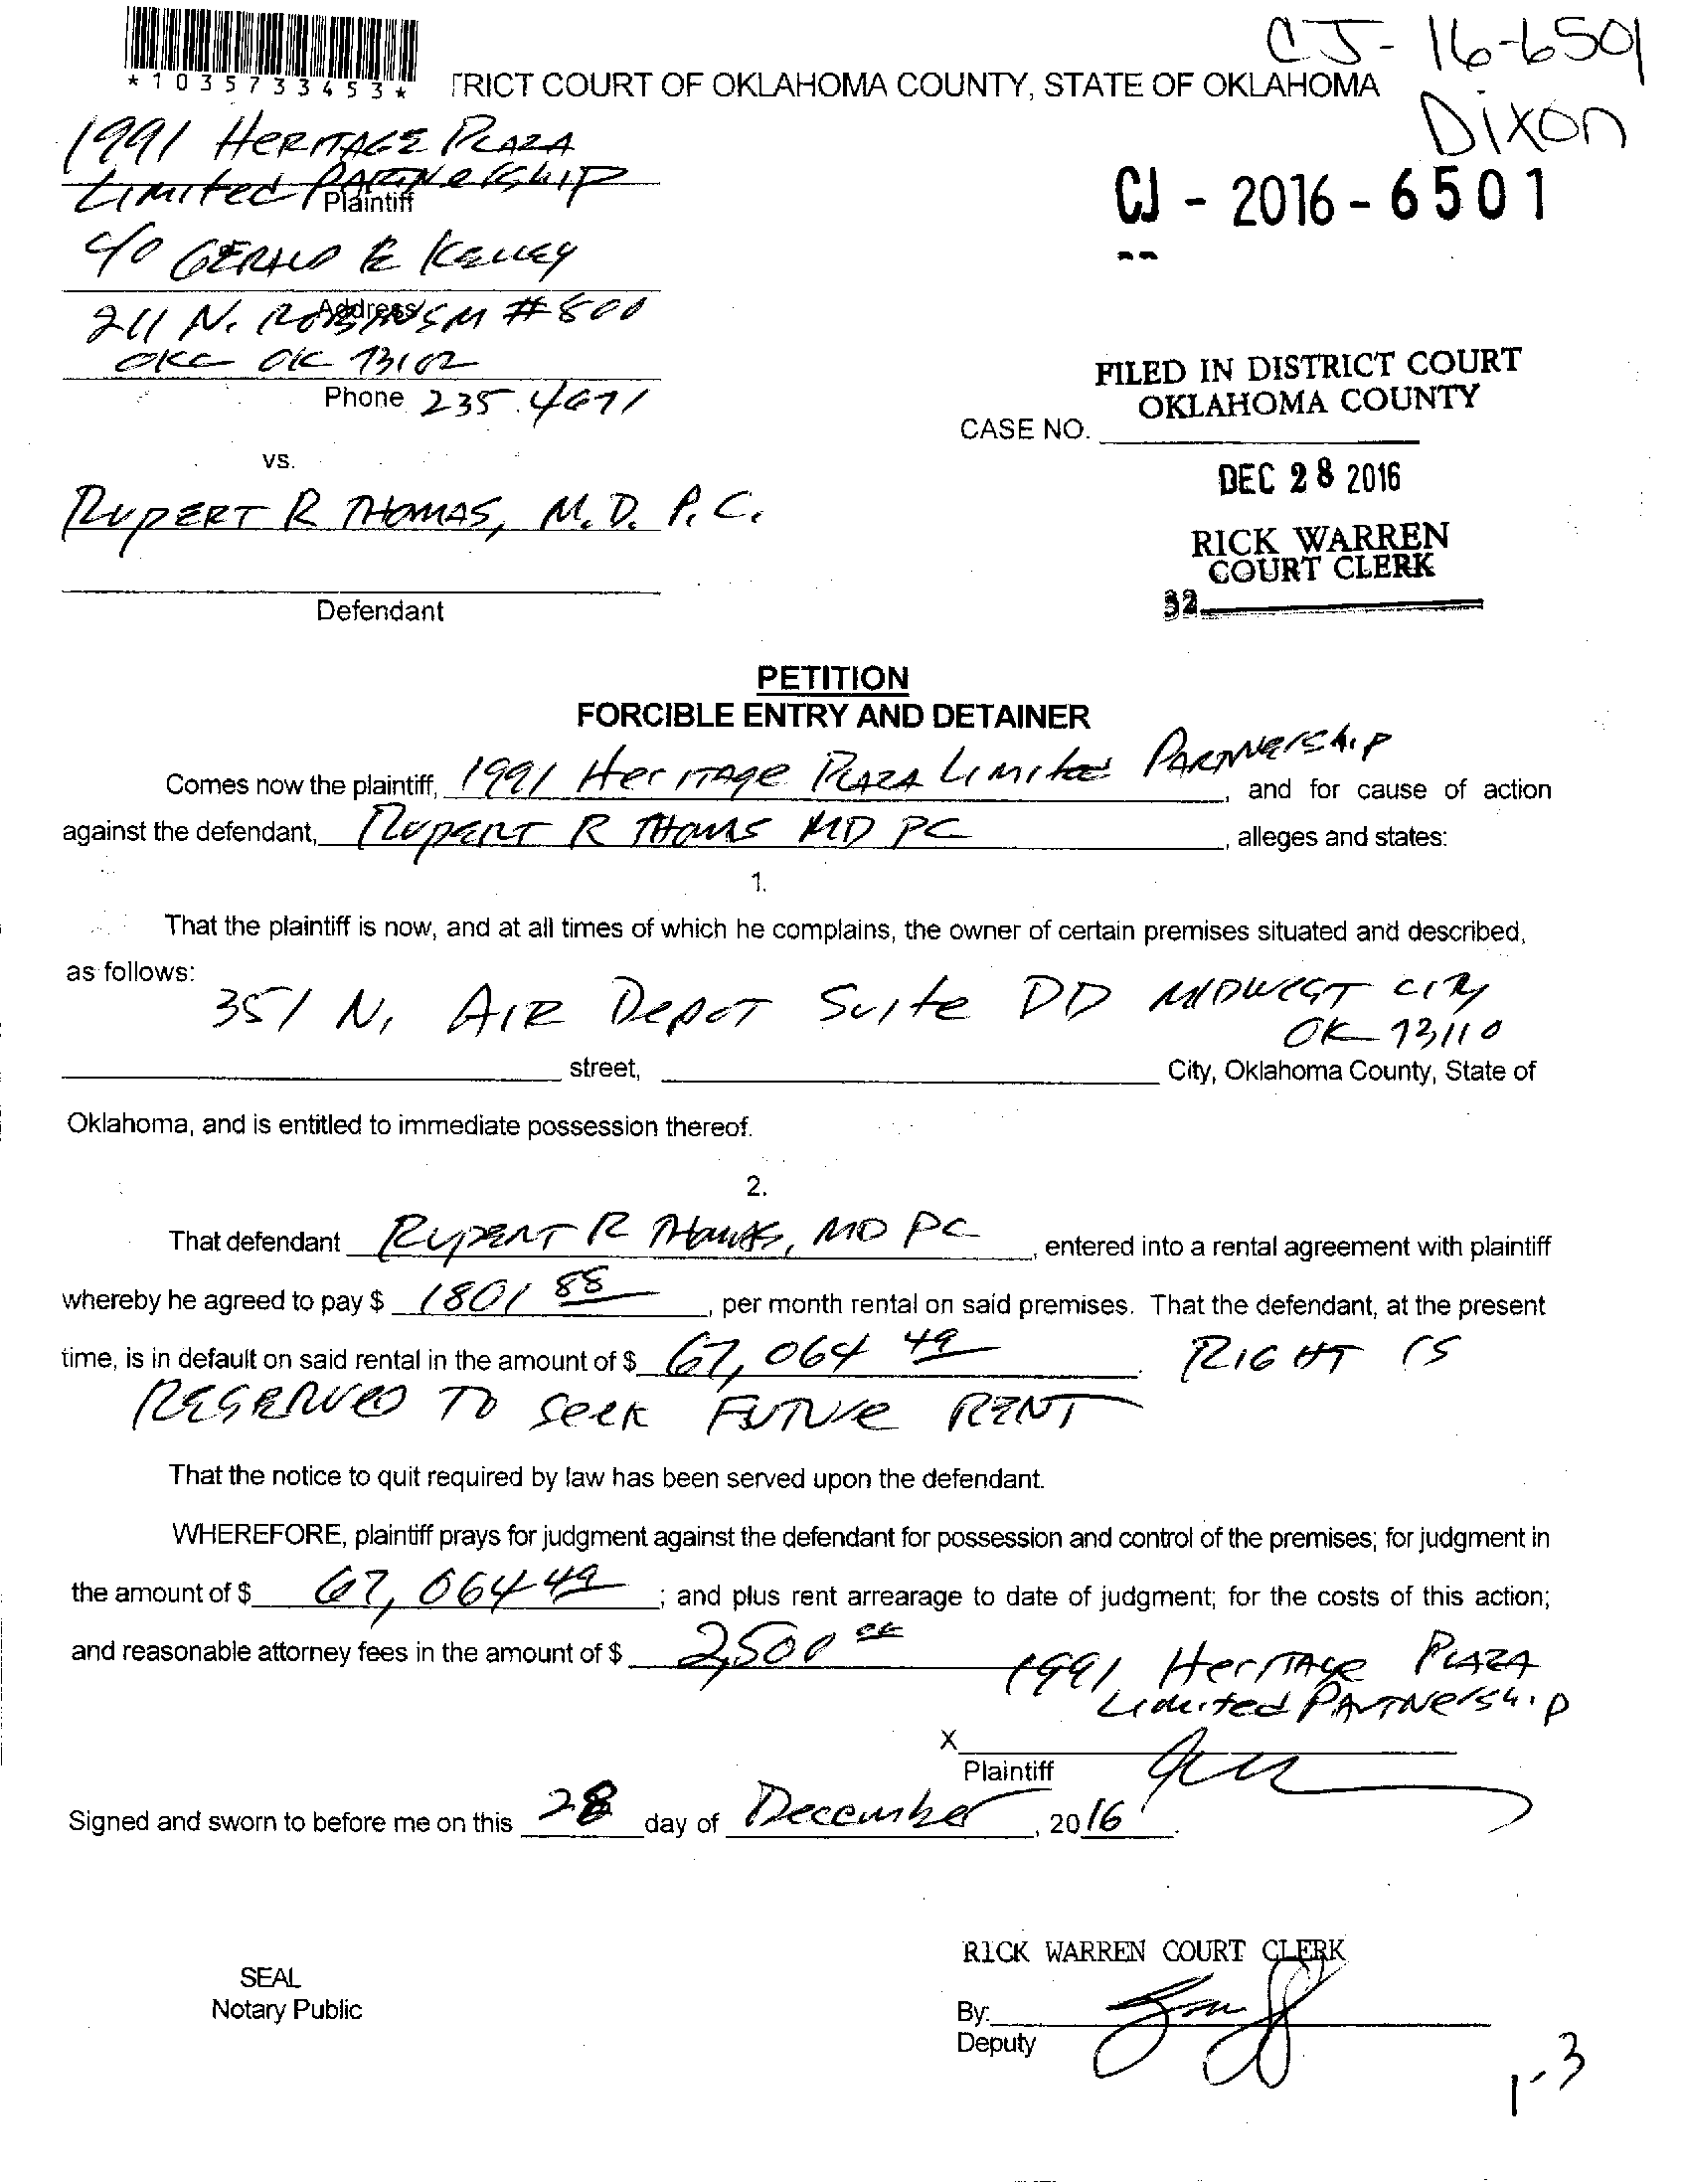 CJ-16-6501
*1035733453*
TRICT COURT OF OKLAHOMA COUNTY, STATE OF OKLAHOMA
Dixon
1991 HERITAGE PLAZA
LIMITED PARTNERSHIP
Plaintiff
CJ - 2016 - 6501
c/o GERALD R KELLEY
Address
211 N. ROBINSON #800
OKC OK 73102
FILED IN DISTRICT COURT
OKLAHOMA COUNTY
Phone 235.4671
CASE NO.
vs.
DEC 28 2016
RUPERT R THOMAS, M.D. P.C.
RICK WARREN
COURT CLERK
32
Defendant
PETITION
FORCIBLE ENTRY AND DETAINER
Comes now the plaintiff, 1991 HERITAGE PLAZA LIMITED PARTNERSHIP, and for cause of action
against the defendant, RUPERT R THOMAS MD PC, alleges and states:
1.
That the plaintiff is now, and at all times of which he complains, the owner of certain premises situated and described,
as follows:
351 N. AIR DEPOT Suite DD MIDWEST CITY
OK 73110
street, City, Oklahoma County, State of
Oklahoma, and is entitled to immediate possession thereof.
2.
That defendant RUPERT R THOMAS, MD PC, entered into a rental agreement with plaintiff
whereby he agreed to pay $ 1801 88, per month rental on said premises. That the defendant, at the present
time, is in default on said rental in the amount of $ 67,064 49. RIGHT IS
RESERVED TO SEEK FUTURE RENT
That the notice to quit required by law has been served upon the defendant.
WHEREFORE, plaintiff prays for judgment against the defendant for possession and control of the premises; for judgment in
the amount of $ 67,064 49; and plus rent arrearage to date of judgment; for the costs of this action;
and reasonable attorney fees in the amount of $ 2,500
1991 HERITAGE PLAZA
LIMITED PARTNERSHIP
X
Plaintiff
Signed and sworn to before me on this 28 day of December, 2016.
RICK WARREN COURT CLERK
SEAL
Notary Public
By:
Deputy
1-3